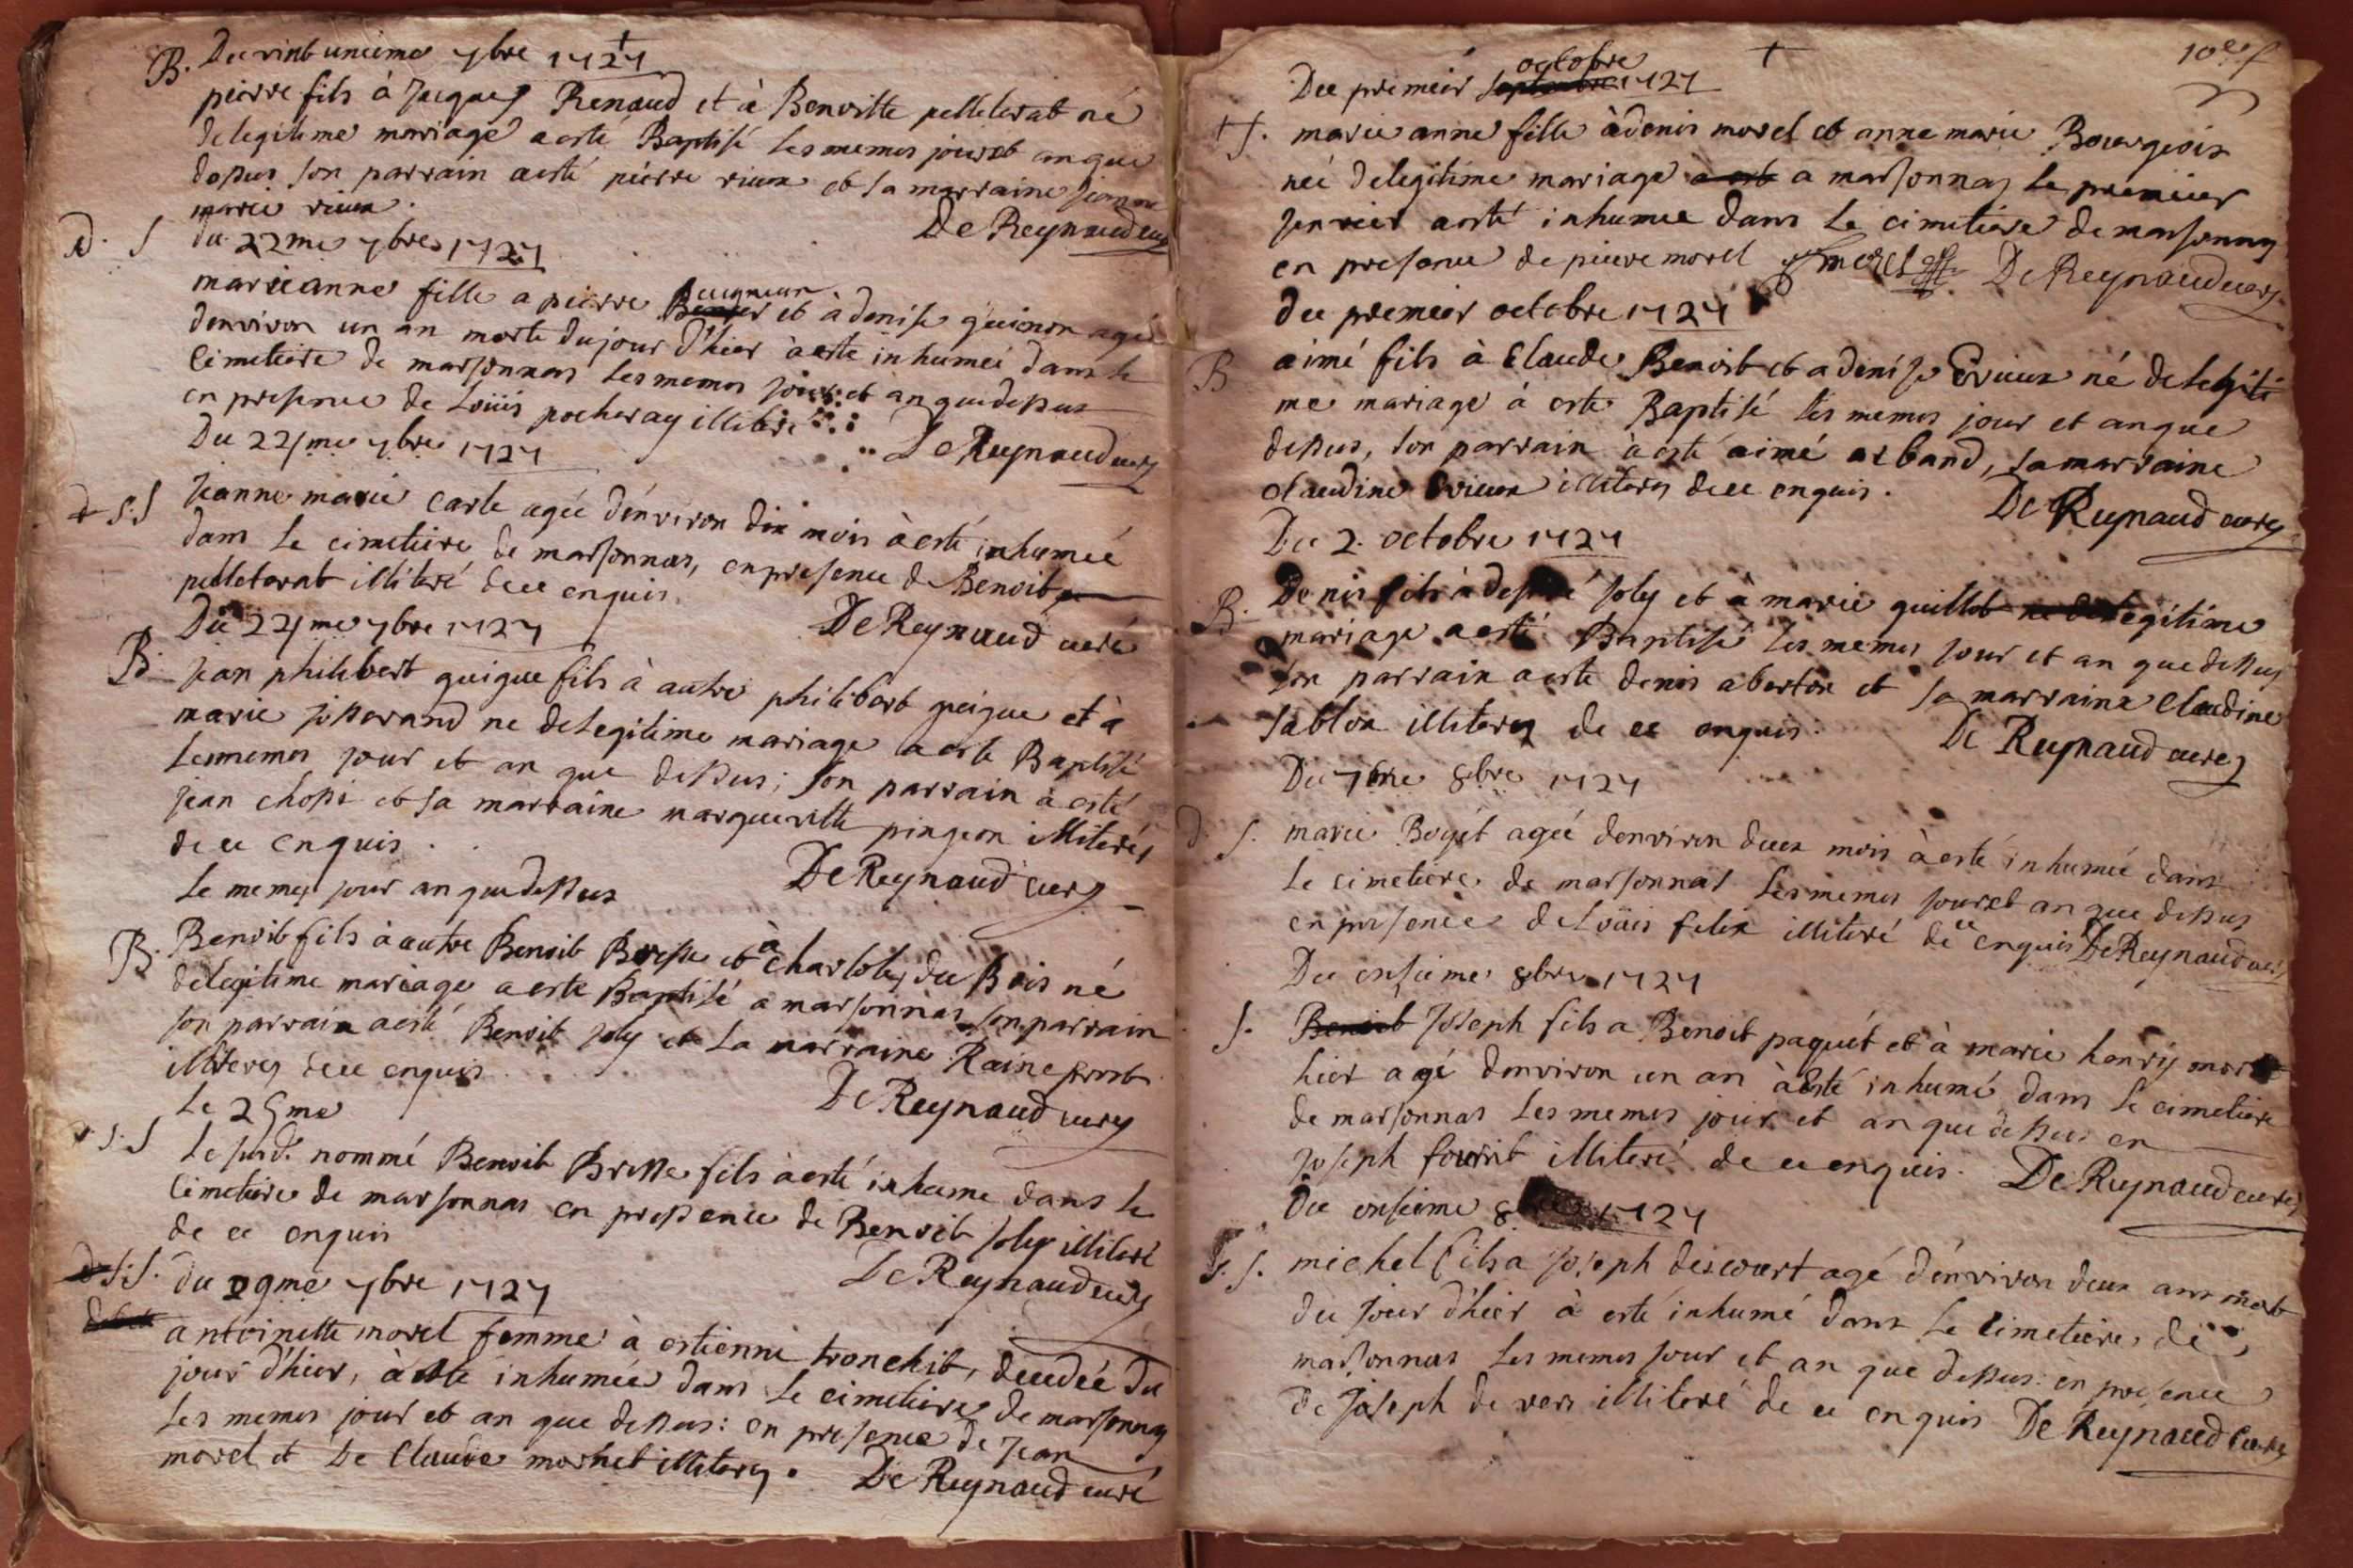 B. Du vint uniême 7bre 1727
pierre fils à Jacques Renaud et à Benoitte pelleterat né
de legitime mariage a esté Baptisé les memes jour et an que
dessus son parrain a esté pierre rieux et sa marraine jeanne
marie rieux.
De Reynaud curé
d. S du 22me 7bre 1727
marieanne fille a pierre Seigneur et à denise guionon agée
denviron un an morte du jour d'hier à esté inhumeé dans le
Cimetiere de marsonnas les memes jour et an que dessus
en presence de Loüis pocheray illiteré
De Reynaud curé
Du 22me 7bre 1727
d S.S Jeanne marie Carle agée d'environ dix mois à esté inhumeé
dans le cimetiere de marsonnas, en presence de Benoit
pelleterat illiteré de ce enquis.
De Reynaud curé
Du 22me 7bre 1727
B. jean philibert guigue fils à autre philibert guigue et à
marie josserand ne de legitime mariage a esté Baptisé
les memes jour et an que dessus; son parrain à esté
jean chossi et sa marraine margueritte pingeon illiterés
de ce enquis.
De Reynaud curé
Le memes jour an que dessus
B. Benoit fils à autre Benoit Bresse et à Charlote du Bois né
de legitime mariage a esté Baptisé a marsonnas son parrain
son parrain a esté Benoit joly et la marraine Raine prost
illiterés de ce enquis
De Reynaud curé
Le 25me
S.S Le susd. nommé Benoit Bresse fils à esté inhumé dans le
Cimetiere de marsonnas en presence de Benoit joly illiteré
de ce enquis
De Reynaud curé
d S.S. du 29me 7bre 1727
antoinette morel femme à estienne tronchit, decedée du
jour d'hier, à esté inhumée dans le cimetiere de marsonnas
les memes jour et an que dessus: en presence de Jean
morel et De Claude morhet illiterés. De Reynaud curé
Du premier septembre octobre 1727
S. marie anne fille à denis morel et anne marie Bourgeois
neé de legitime mariage a marsonnas le premier
janvier a esté inhumée dans le cimetiere de marsonnas
en presence de pierre morel morel De Reynaud curé
du premier octobre 1727
B aimé fils à Claude Benoit et a denise Evieux né de legiti
me mariage à esté Baptisé les memes jour et an que
dessus, son parrain à esté aimé arband, sa marraine
claudine Evieux illiterés de ce enquis.
De Reynaud curé
Du 2. octobre 1727
B. Denis fils à desiré joly et à marie guillot né de legitime
mariage a esté Baptisé les memes jour et an que dessus
son parrain a esté denis aberton et sa marraine Claudine
Sablon illiterés de ce enquis.
De Reynaud curé
Du 7me 8bre 1727
d. S. marie Boyét ageé denviron deux mois à esté inhumeé dans
le cimetiere de marsonnas les memes jour et an que dessus
en presence de Loüis felix illiteré de ce enquis De Reynaud curé
Du onsieme 8bre 1727
S. Benoit Joseph fils a Benoit paquét et à marie henry mort
hier agé denviron un an à esté inhumé dans le cimetiere
de marsonnas les memes jour et an que dessus en
joseph fourit illiteré de ce enquis. De Reynaud curé
Du onsieme 8bre 1727
S. michel fils a joseph descourt agé d'environ deux ans mort
du jour d'hier à esté inhumé dans le Cimetiere de
marsonnas les memes jour et an que dessus: en presence
de joseph de vers illiteré de ce enquis De Reynaud Curé